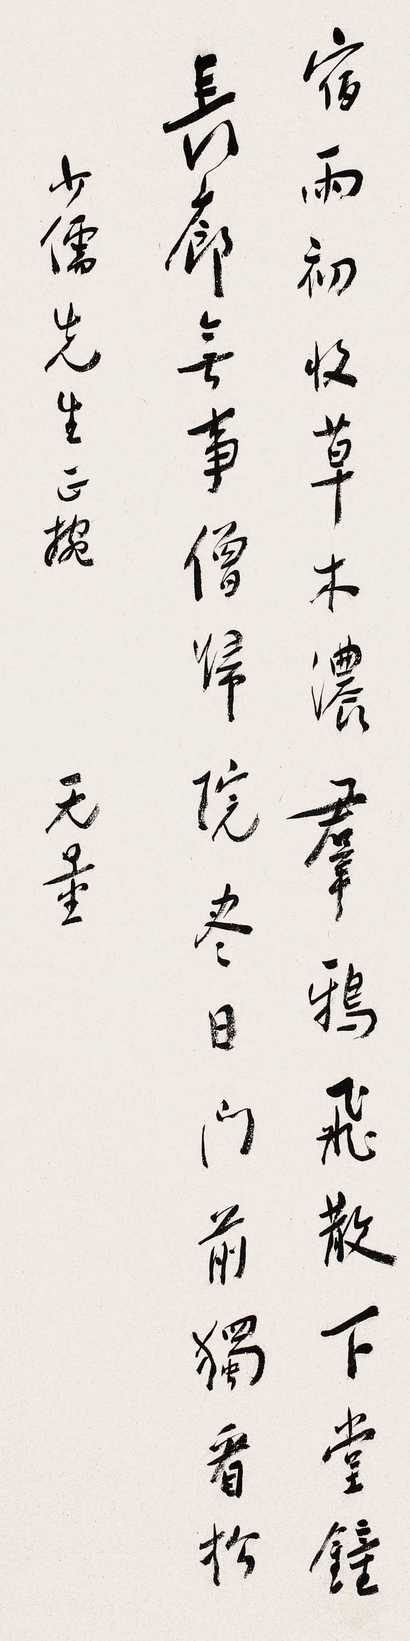 宿雨初收草木濃羣鴉飛散下堂鐘
長廊無事僧歸院盡日門前獨看松
少儒先生正捥
无量